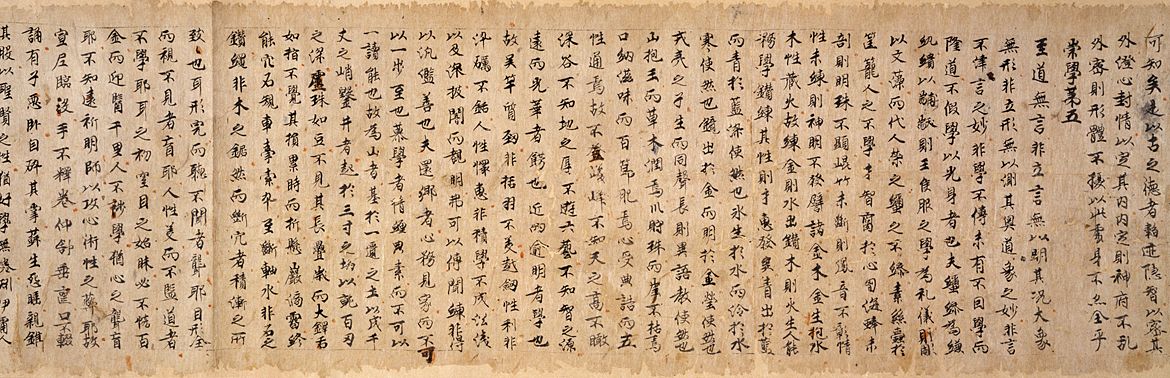 何知矣是以古之德者韜迹隱智以密其
外澄心封情以定其內內定則神府不乱
外密則形體不擾以此處身不亦全乎
崇學第五
至道無言非立言無以明其況大象
無形非立形無以測其奧道象之妙非言
不津言之妙非學不傳未有不因學而
隆道不假學以光身者也夫璽繰為絲
紈績以黼黻則王侯服之學為礼儀則彫
以文藻而代人榮之璽之不繰素絲蠹於
筐籠人之不學才智腐於心胸假臻未
剖則明珠不顯崐竹未斷則鳳音不彰情
性未練則神明不發譬諸金木金生抱水
木性藏火故練金則水出鑽木則火生人能
務學鑽練其性則才惠發矣青出於藍
而青於藍染使然也氷生於水而泠於水
寒使然也鏡出於金而明於金瑩使然也
戎夷之子生而同聲長則異語教使然也
山抱玉而草木潤焉川貯珠而岸不枯焉
口納滋味而百節肥焉心受典誥而五
性通焉故不登峻岸不知天之高不瞰
深谷不知地之厚不遊六藝不知智之源
遠而光華者飾也近而俞明者學也
故吳竿質勁非栝羽不美越劍性利非
淬礪不銛人性懁惠非積學不成沿淺
以及深披闇而覩明弗可以傳聞練非得
以汎濫善也夫還鄉者心務見家而不可
以一步至也慕學者情纏典素而不可以
一讀能也故為山者基於一簣之土以成千
丈之峭鑿井者起於三寸之坎以就百刃
之深廬珠如豆不見其長疊歲而大鐸舌
如指不覺其損累時而折懸巖滴霤終
能穴石規車牽索卒至斷軸水非石之
鑽繩非木之鋸然而斷穴者積漸之所
致也耳形完而聽不聞者聾耶目形全
而視不見者盲耶人性美而不監道者
不學耶耳之初窒目之始昧必不惜百
金而迎醫千里人不涉學猶心之聾盲
耶不知遠祈明師以攻心術性之弊耶故
宣尼臨沒手不釋卷仲舒垂卒口不輟
誦有子惡卧自焠其掌蘇生患睡親錐
其股以聖賢之性猶好學無倦矧伊庸人